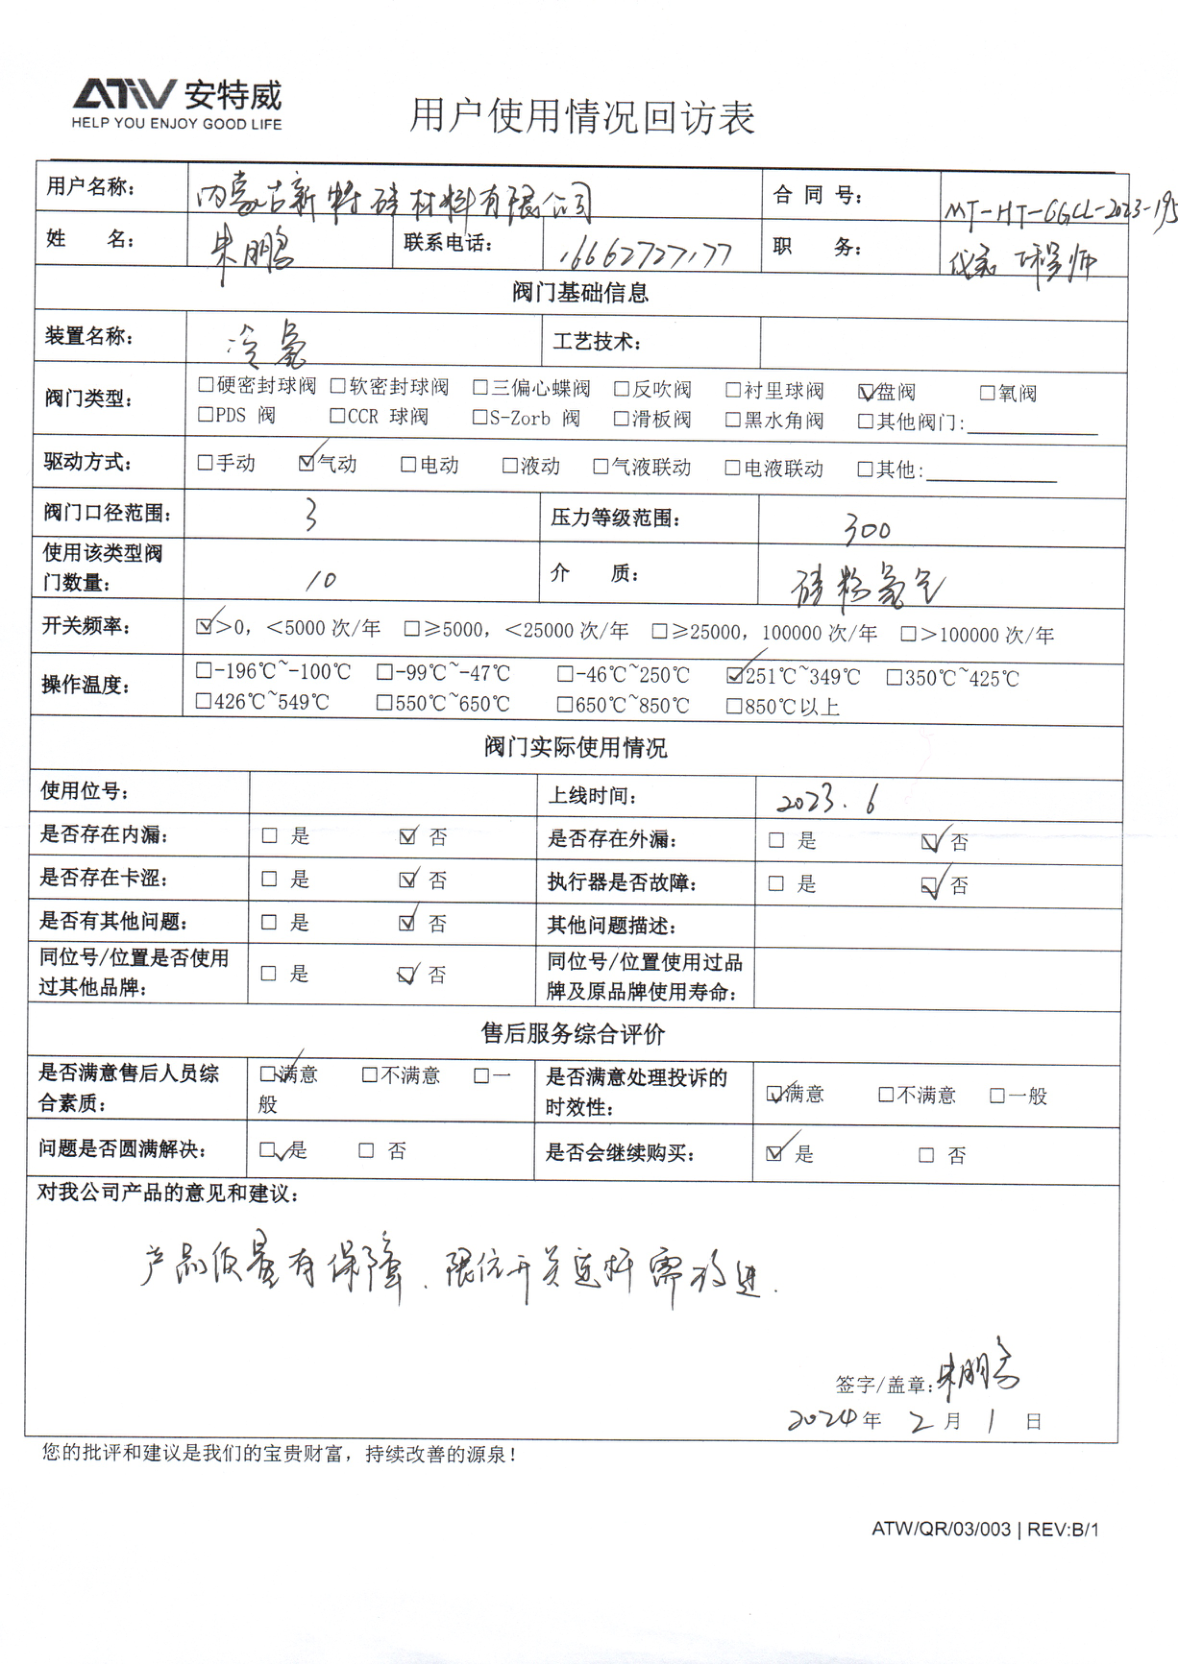 ATW 安特威
HELP YOU ENJOY GOOD LIFE
用户使用情况回访表
用户名称: 内蒙古新特硅材料有限公司 合同号: MT-HT-GGCL-2023-195
姓 名: 朱鹏 联系电话: 16662727177 职 务: 仪表工程师
阀门基础信息
装置名称: 冷氢 工艺技术:
阀门类型: □硬密封球阀 □软密封球阀 □三偏心蝶阀 □反吹阀 □衬里球阀 ☑盘阀 □氧阀
□PDS 阀 □CCR 球阀 □S-Zorb 阀 □滑板阀 □黑水角阀 □其他阀门:
驱动方式: □手动 ☑气动 □电动 □液动 □气液联动 □电液联动 □其他:
阀门口径范围: 3 压力等级范围: 300
使用该类型阀
门数量: 10 介 质: 硅粉氢气
开关频率: ☑>0, <5000 次/年 □≥5000, <25000 次/年 □≥25000, 100000 次/年 □>100000 次/年
操作温度: □-196℃~-100℃ □-99℃~-47℃ □-46℃~250℃ ☑251℃~349℃ □350℃~425℃
□426℃~549℃ □550℃~650℃ □650℃~850℃ □850℃以上
阀门实际使用情况
使用位号: 上线时间: 2023.6
是否存在内漏: □ 是 ☑ 否 是否存在外漏: □ 是 ☑ 否
是否存在卡涩: □ 是 ☑ 否 执行器是否故障: □ 是 ☑ 否
是否有其他问题: □ 是 ☑ 否 其他问题描述:
同位号/位置是否使用
过其他品牌: □ 是 ☑ 否 同位号/位置使用过品
牌及原品牌使用寿命:
售后服务综合评价
是否满意售后人员综
合素质: ☑满意 □不满意 □一
般 是否满意处理投诉的
时效性: ☑满意 □不满意 □一般
问题是否圆满解决: ☑是 □ 否 是否会继续购买: ☑ 是 □ 否
对我公司产品的意见和建议:
产品质量有保障.限位开关选择需改进.
签字/盖章: 朱鹏
2024年 2 月 1 日
您的批评和建议是我们的宝贵财富，持续改善的源泉！
ATW/QR/03/003 | REV:B/1